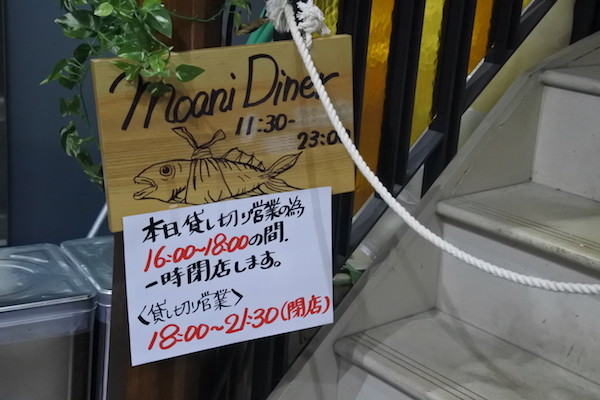 Moani Diner
11:30-
23:00
本日、貸し切り営業の為
16:00〜18:00の間、
一時閉店します。
〈貸し切り営業〉
18:00〜21:30(閉店)